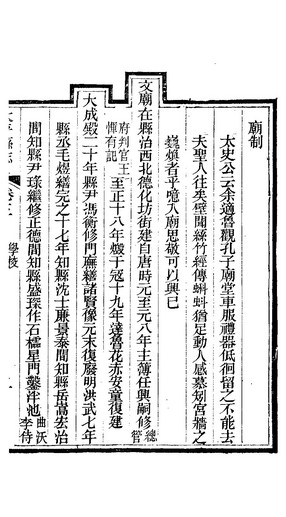 廟制
太史公云余適魯觀孔子廟堂車服禮器低徊留之不能去
夫聖人往矣壁聞絲竹經傳蝌蚪猶足動人感慕矧宮牆之
巍煥者乎噫入廟思敬可以興已
文廟在縣治西北德化坊街建自唐時元至元八年主薄任興嗣修總管
府判官王惲有記至正十八年燬于冦十九年達魯花赤安童復建
大成殿二十年縣尹馮衡修門廡繕諸賢像元末復廢明洪武七年
縣丞毛煜繕完之十七年知縣沈士廉景泰間知縣岳嵩宏治
間知縣尹珠繼修正德間知縣盛環作石櫺星門鑿泮池曲沃李侍
學校